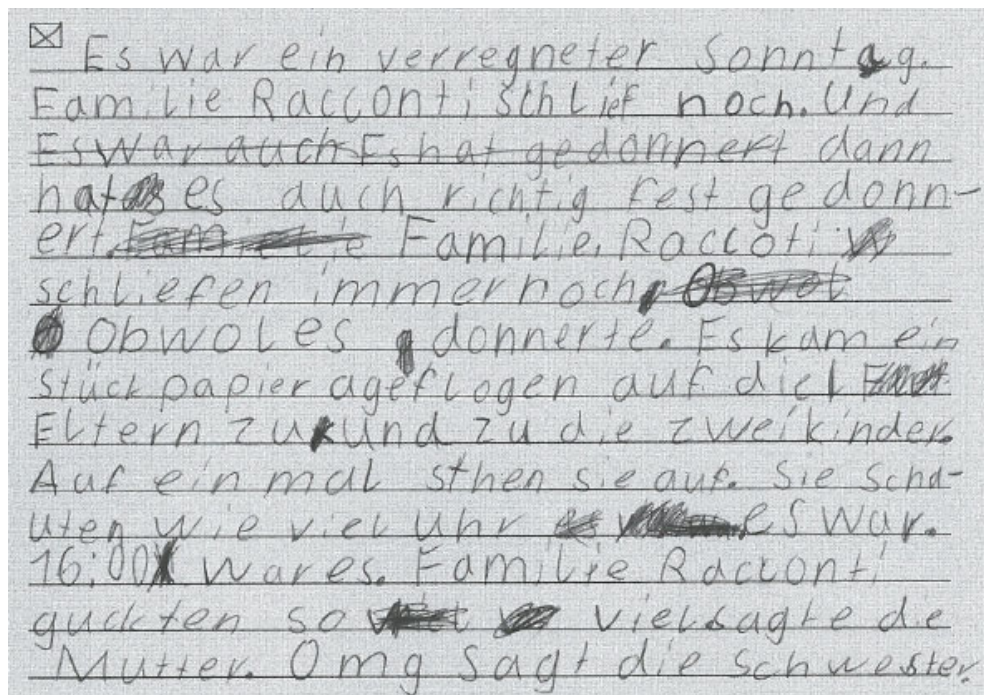 Es war ein verregneter Sonntag.
Familie Racconti schlief noch. Und
Es war auch Es hat gedonnert dann
hat es auch richtig fest gedonn-
ert. Familie Raccoti
schliefen immernoch,
Obwol es donnerte. Es kam ein
stück papier ageflogen auf die
Eltern zu und zu die zwei kinder.
Auf ein mal sthen sie auf. Sie scha-
uten wie viel Uhr es war.
16:00 war es. Familie Racconti
guckten so viel sagte die
Mutter. Omg sagt die Schwester.